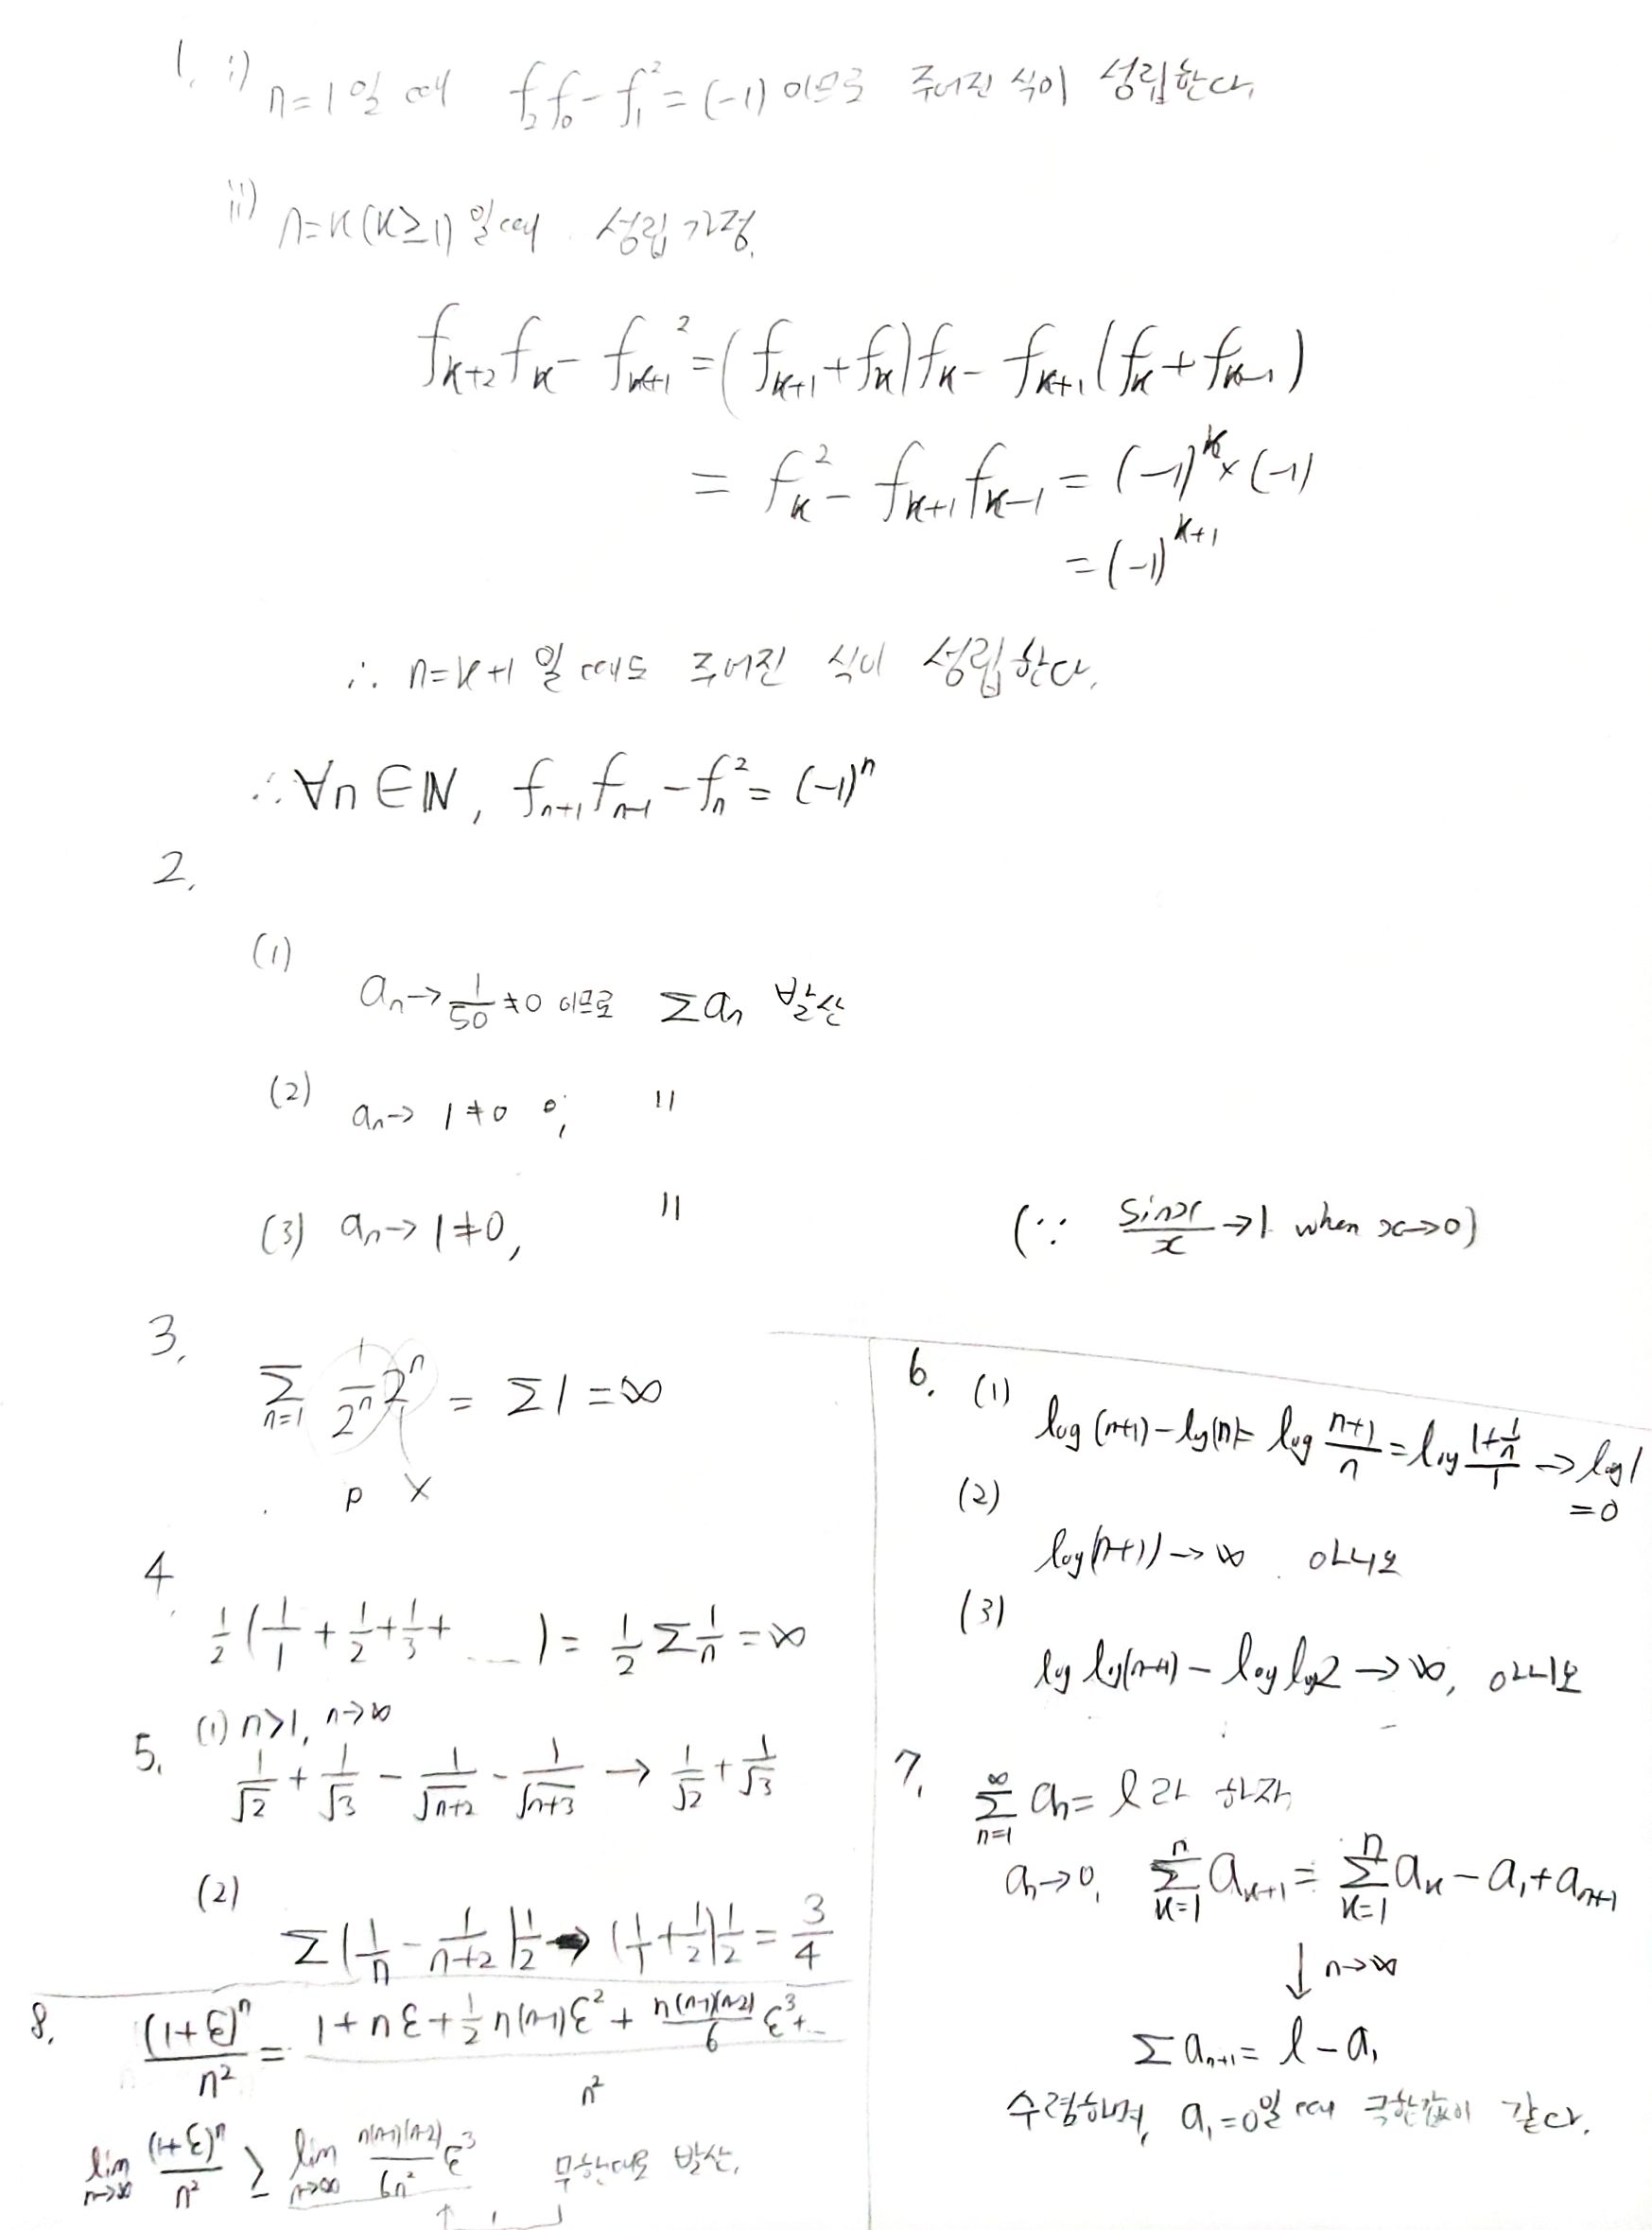 1. i) n=1일 때 f₂f₀ - f₁² = (-1) 이므로 주어진 식이 성립한다.
ii) n=k(k≥1)일 때 성립 가정.
f_{k+2}f_k - f_{k+1}² = (f_{k+1}+f_k)f_k - f_{k+1}(f_k+f_{k-1})
= f_k² - f_{k+1}f_{k-1} = (-1)^k × (-1)
= (-1)^{k+1}
∴ n=k+1 일 때도 주어진 식이 성립한다.
∴ ∀n∈ℕ, f_{n+1}f_{n-1} - f_n² = (-1)^n
2.
(1)
a_n → 1/50 ≠ 0 이므로 Σa_n 발산
(2) a_n → 1 ≠ 0 〃
(3) a_n → 1 ≠ 0, 〃 (∵ sinx/x → 1 when x→0)
3.
Σ_{n=1} 1/2^n 2^n = Σ1 = ∞
p x
4.
1/2 (1/1 + 1/2 + 1/3 + ...) = 1/2 Σ 1/n = ∞
5. (1) n>1, n→∞
1/√2 + 1/√3 - 1/√(n+2) - 1/√(n+3) → 1/√2 + 1/√3
(2)
Σ(1/n - 1/(n+2))1/2 → (1/1 + 1/2)1/2 = 3/4
6. (1)
log(n+1) - log(n) = log (n+1)/n = log (1+1/n)/1 → log1
=0
(2)
log(n+1) → ∞ 아니오
(3)
log log(n+1) - log log2 → ∞, 아니오
7.
Σ_{n=1}^∞ a_n = l라 하자
a_n→0, Σ_{k=1}^n a_{k+1} = Σ_{k=1}^n a_k - a₁ + a_{n+1}
↓ n→∞
Σ a_{n+1} = l - a₁
수렴하며, a₁=0일 때 극한값이 같다.
8. (1+ε)^n / n² = (1 + nε + 1/2 n(n-1)ε² + n(n-1)(n-2)/6 ε³ + ...) / n²
lim_{n→∞} (1+ε)^n / n² ≥ lim_{n→∞} n(n-1)(n-2)/6n² ε³ 무한대로 발산.